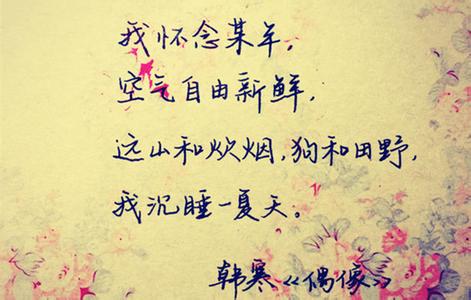 我怀念某年，
空气自由新鲜，
远山和炊烟，狗和田野，
我沉睡一夏天。
韩寒《偶像》